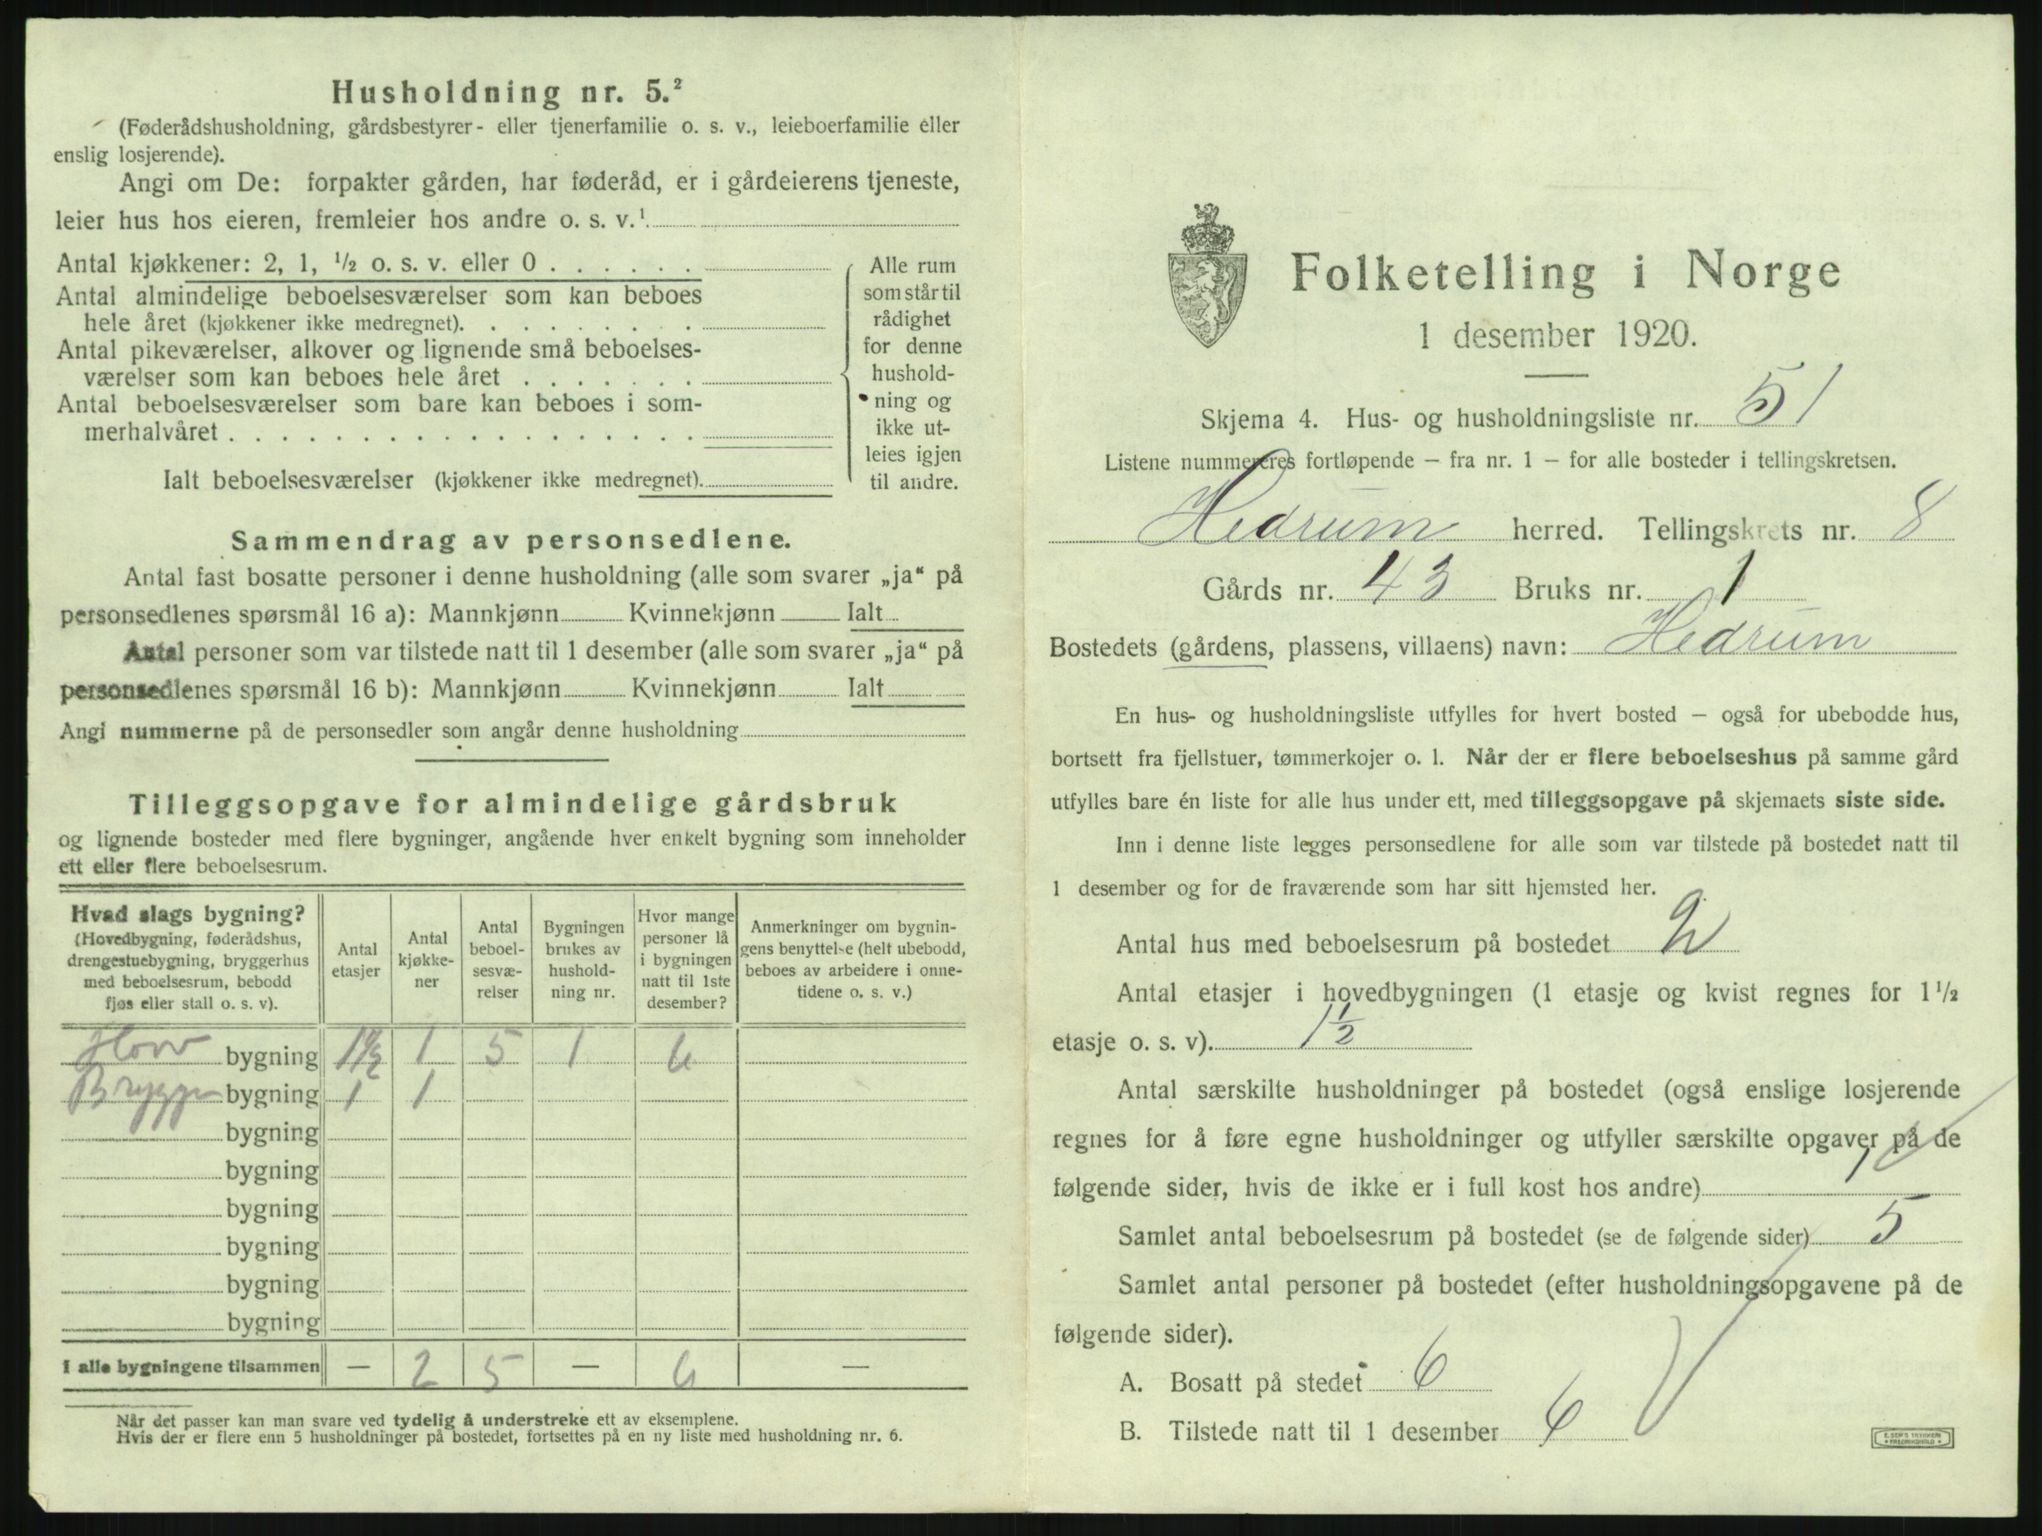 Husholdning nr. 5.²
(Føderådshusholdning, gårdsbestyrer- eller tjenerfamilie o. s. v., leieboerfamilie eller
enslig losjerende).
Angi om De: forpakter gården, har føderåd, er i gårdeierens tjeneste,
leier hus hos eieren, fremleier hos andre o. s. v.¹
Antal kjøkkener: 2, 1, ½ o. s. v. eller 0 . . . . . .
Antal almindelige beboelsesværelser som kan beboes
hele året (kjøkkener ikke medregnet). . . . . . . . .
Antal pikeværelser, alkover og lignende små beboelses-
værelser som kan beboes hele året . . . . . . .
Antal beboelsesværelser som bare kan beboes i som-
merhalvåret . . . . . . . . . . . . . . . . . .
Ialt beboelsesværelser (kjøkkener ikke medregnet).
Alle rum
som står til
rådighet
for denne
hushold-
ning og
ikke ut-
leies igjen
til andre.
Sammendrag av personsedlene.
Antal fast bosatte personer i denne husholdning (alle som svarer „ja“ på
personsedlenes spørsmål 16 a): Mannkjønn Kvinnekjønn Ialt
Antal personer som var tilstede natt til 1 desember (alle som svarer „ja“ på
personsedlenes spørsmål 16 b): Mannkjønn Kvinnekjønn Ialt
Angi nummerne på de personsedler som angår denne husholdning
Tilleggsopgave for almindelige gårdsbruk
og lignende bosteder med flere bygninger, angående hver enkelt bygning som inneholder
ett eller flere beboelsesrum.
Hvad slags bygning?
(Hovedbygning, føderådshus,
drengestuebygning, bryggerhus
med beboelsesrum, bebodd
fjøs eller stall o. s. v).
Antal
etasjer
Antal
kjøkke-
ner
Antal
beboel-
sesvæ-
relser
Bygningen
brukes av
hushold-
ning nr.
Hvor mange
personer lå
i bygningen
natt til 1ste
desember?
Anmerkninger om bygnin-
gens benyttelse (helt ubebodd,
beboes av arbeidere i onne-
tidene o. s. v.)
Hov bygning 1½ 1 5 1 6
Brygge bygning 1 1
bygning
bygning
bygning
bygning
bygning
bygning
I alle bygningene tilsammen — 2 5 — 6 —
Når det passer kan man svare ved tydelig å understreke ett av eksemplene.
Hvis der er flere enn 5 husholdninger på bostedet, fortsettes på en ny liste med husholdning nr. 6.
Folketelling i Norge
1 desember 1920.
Skjema 4. Hus- og husholdningsliste nr. 51
Listene nummereres fortløpende – fra nr. 1 – for alle bosteder i tellingskretsen.
Hedrum herred. Tellingskrets nr. 8
Gårds nr. 43 Bruks nr. 1
Bostedets (gårdens, plassens, villaens) navn: Hedrum
En hus- og husholdningsliste utfylles for hvert bosted – også for ubebodde hus,
bortsett fra fjellstuer, tømmerkojer o. l. Når der er flere beboelseshus på samme gård
utfylles bare én liste for alle hus under ett, med tilleggsopgave på skjemaets siste side.
Inn i denne liste legges personsedlene for alle som var tilstede på bostedet natt til
1 desember og for de fraværende som har sitt hjemsted her.
Antal hus med beboelsesrum på bostedet 2
Antal etasjer i hovedbygningen (1 etasje og kvist regnes for 1½
etasje o. s. v). 1½
Antal særskilte husholdninger på bostedet (også enslige losjerende
regnes for å føre egne husholdninger og utfyller særskilte opgaver på de
følgende sider, hvis de ikke er i full kost hos andre) 1
Samlet antal beboelsesrum på bostedet (se de følgende sider) 5
Samlet antal personer på bostedet (efter husholdningsopgavene på de
følgende sider).
A. Bosatt på stedet 6
B. Tilstede natt til 1 desember 6